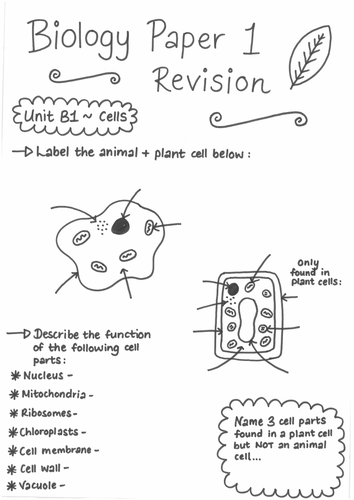 Biology Paper 1
Revision
Unit B1 ~ Cells
→ Label the animal + plant cell below :
Only
found in
plant cells:
→ Describe the function
of the following cell
parts:
* Nucleus -
* Mitochondria -
* Ribosomes -
* Chloroplasts -
* Cell membrane -
* Cell wall -
* Vacuole -
Name 3 cell parts
found in a plant cell
but NOT an animal
cell...